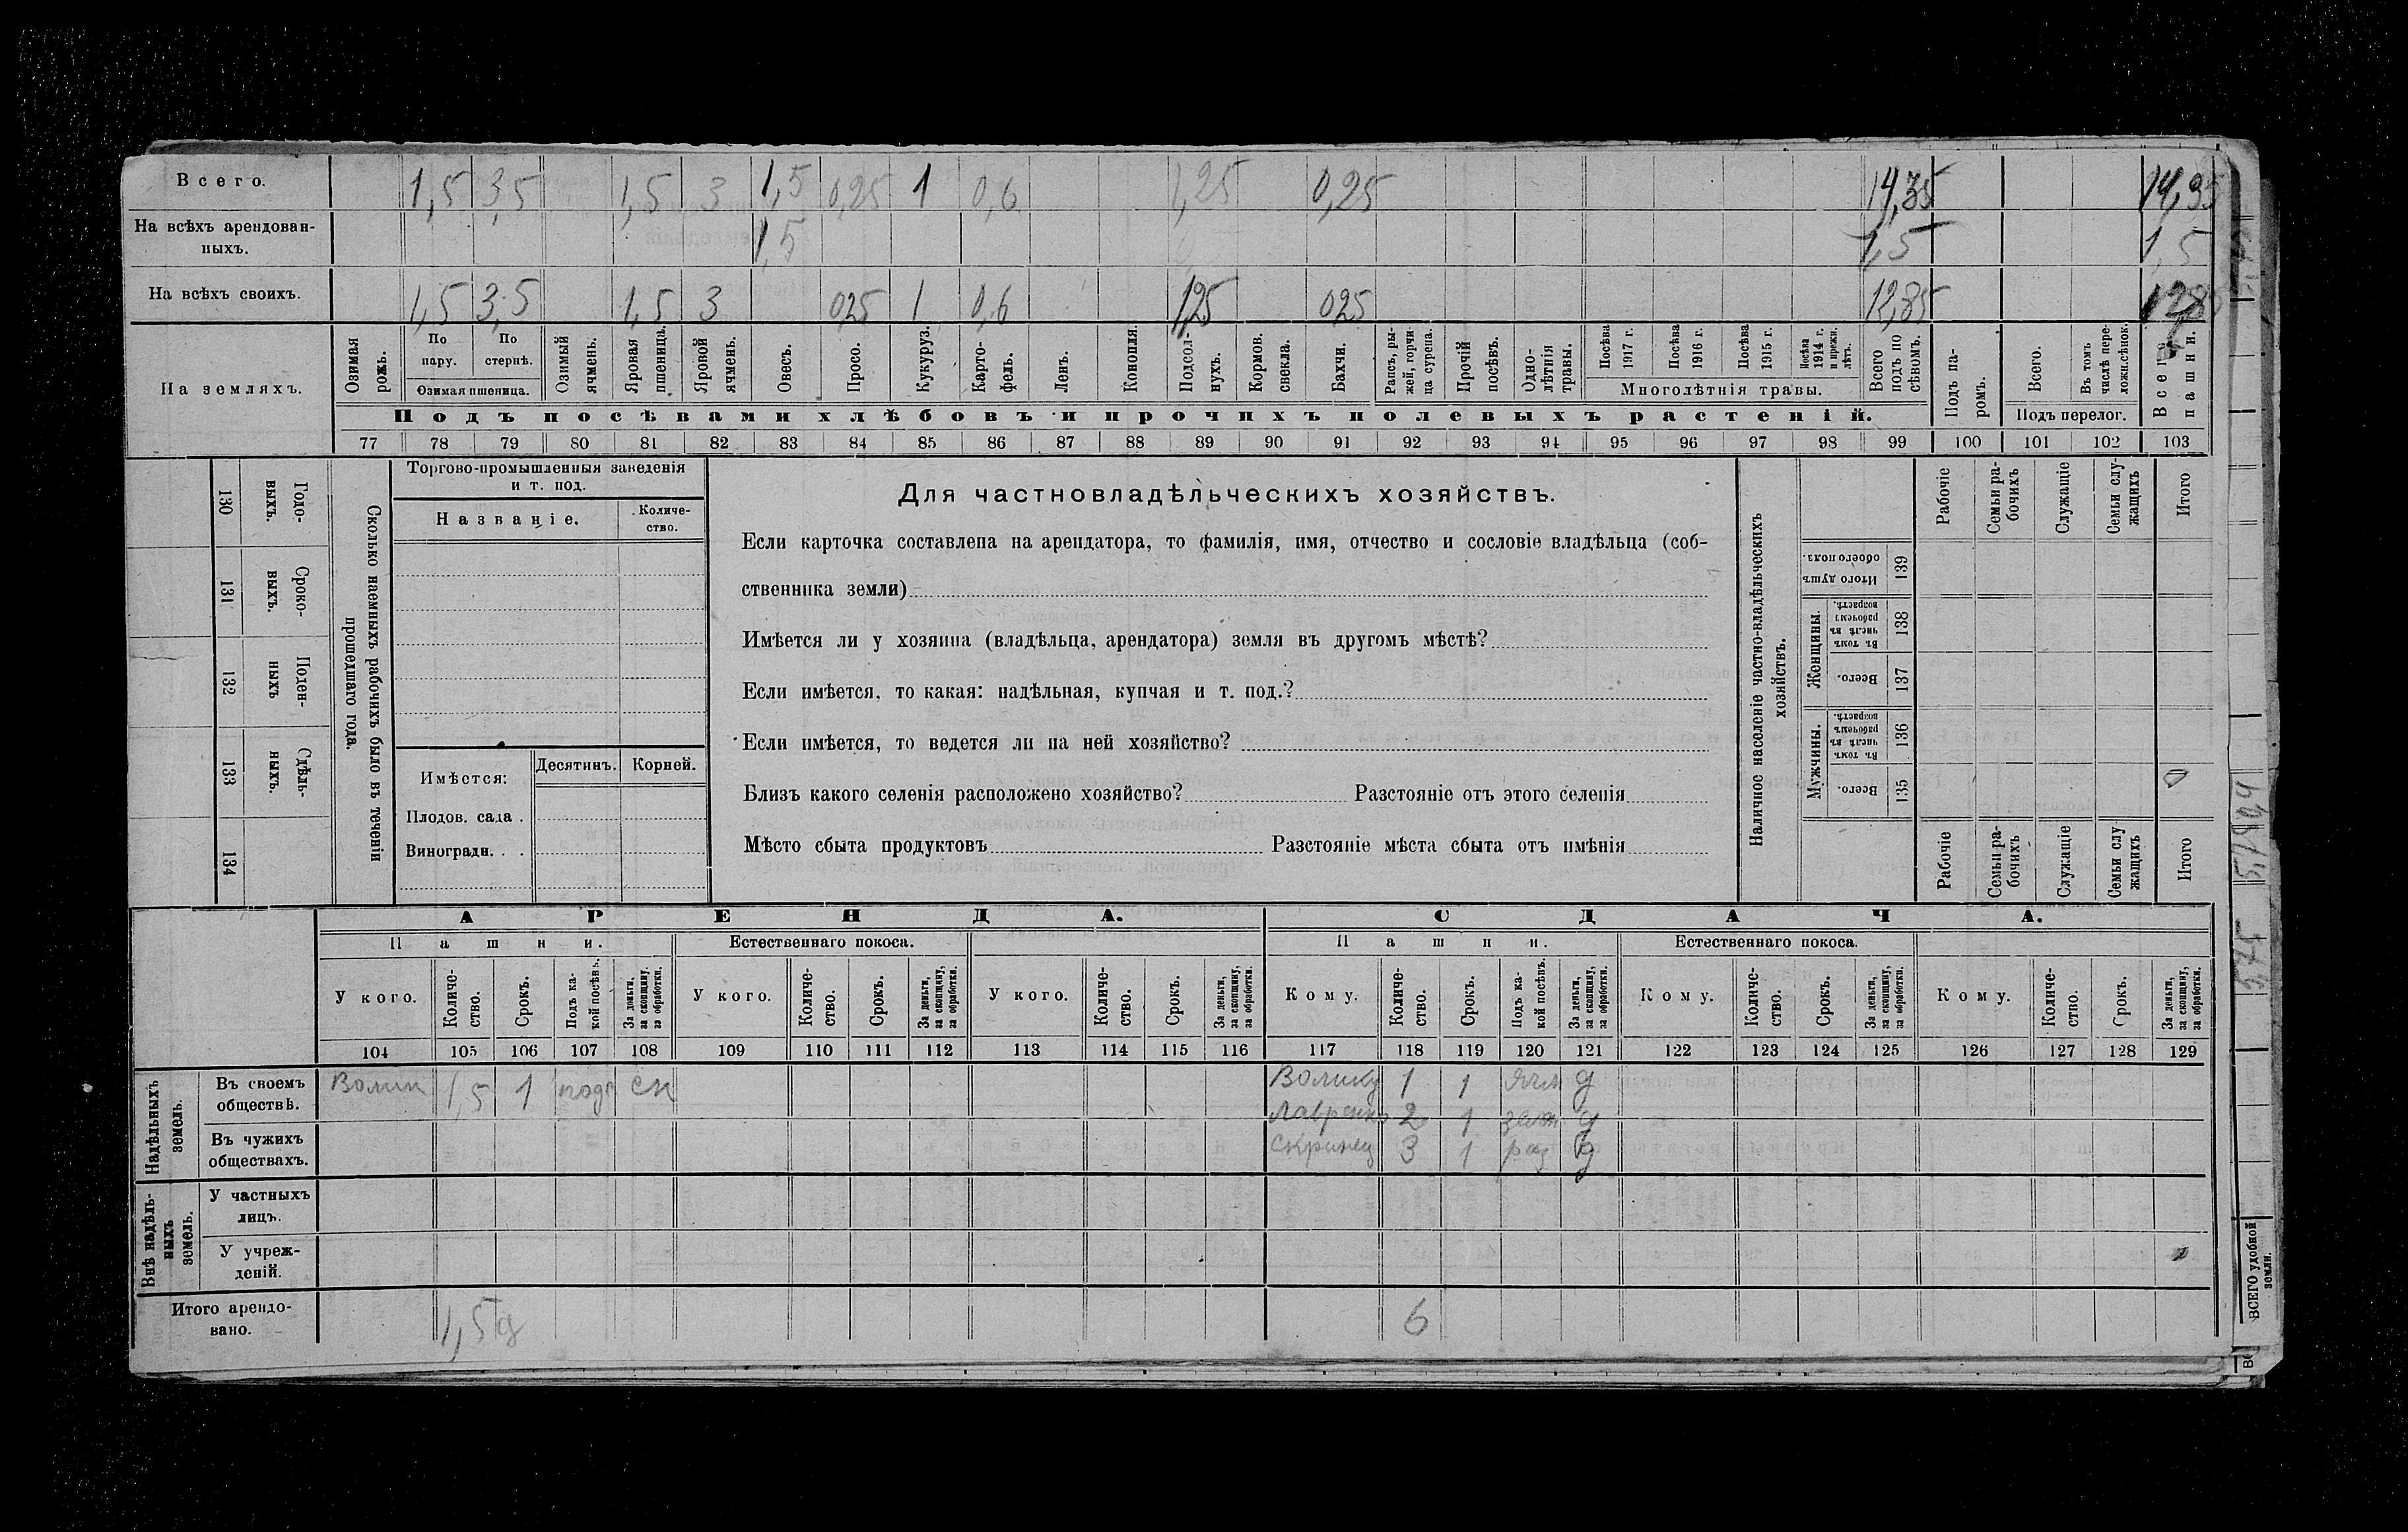 Всего. 1,5 3,5 1,5 3 1,5 0,25 1 0,6 1,25 0,25 14,35 14,35
На всѣхъ арендован-
ныхъ. 1,5 1,5 1,5
На всѣхъ своихъ. 1,5 3,5 1,5 3 0,25 1 0,6 1,25 0,25 12,85 12,85
На земляхъ.
Озимая рожь.
По пару.
По стернѣ.
Озимая пшеница.
Озимый ячмень.
Яровая пшеница.
Яровой ячмень.
Овесъ.
Просо.
Кукуруз.
Карто-
фель.
Ленъ.
Конопля.
Подсол-
нухъ.
Кормов. свекла.
Бахчи.
Рапсъ, ры-
жей, горчи
ца сурепа.
Прочій посѣвъ.
Одно-
лѣтнія травы.
Посѣва 1917 г.
Посѣва 1916 г.
Посѣва 1915 г.
Посѣва 1914 г. и прежн. лѣтъ.
Многолѣтнія травы.
Всего подъ по
сѣвомъ.
Подъ па-
ромъ.
Всего.
Въ томъ числѣ пере-
ложн.сѣнокъ.
Подъ перелог.
Всего пашни.
Подъ посѣвами хлѣбовъ и прочихъ полевыхъ растеній.
77 78 79 80 81 82 83 84 85 86 87 88 89 90 91 92 93 94 95 96 97 98 99 100 101 102 103
Сколько наемныхъ рабочихъ было въ теченіи
прошедшаго года.
Годо-
выхъ.
130
Сроко-
выхъ.
131
Поден-
ныхъ
132
Сдѣль-
ныхъ.
133
134
Торгово-промышленныя заведенія
и т. под.
Названіе.
Количе-
ство.
Имѣется:
Десятинъ.
Корней.
Плодов. сада .
Виноградн. . .
Для частновладѣльческихъ хозяйствъ.
Если карточка составлена на арендатора, то фамилія, имя, отчество и сословіе владѣльца (соб-
ственника земли)
Имѣется ли у хозяина (владѣльца, арендатора) земля въ другомъ мѣстѣ?
Если имѣется, то какая: надѣльная, купчая и т. под.?
Если имѣется, то ведется ли на ней хозяйство?
Близъ какого селенія расположено хозяйство? Разстояніе отъ этого селенія
Мѣсто сбыта продуктовъ Разстояніе мѣста сбыта отъ имѣнія
Наличное населеніе частно-владѣльческихъ
хозяйствъ.
Рабочіе
Семьи ра-
бочихъ
Служащіе
Семьи слу-
жащихъ
Итого
Итого душъ
обоего пола.
139
Женщины.
Въ томъ числѣ въ рабочемъ возрастѣ.
138
Всего.
137
Мужчины.
Въ томъ числѣ въ рабочемъ возрастѣ.
136
Всего.
135
Рабочіе
Семьи ра-
бочихъ
Служащіе
Семьи слу
жащихъ
Итого
АРЕНДА. СДАЧА.
Пашни. Естественнаго покоса. Пашни. Естественнаго покоса.
У кого.
Количе-
ство.
Срокъ.
Подъ ка-
кой посѣвъ.
За деньги,
за скопщину,
за обработки.
У кого.
Количе-
ство.
Срокъ.
За деньги,
за скопщину,
за обработки.
У кого.
Количе-
ство.
Срокъ.
За деньги,
за скопщину,
за обработки.
Кому.
Количе-
ство.
Срокъ.
Подъ ка-
кой посѣвъ.
За деньги,
за скопщину,
за обработки.
Кому.
Количе-
ство.
Срокъ.
За деньги,
за скопщину,
за обработки.
Кому.
Количе-
ство.
Срокъ.
За деньги,
за скопщину,
за обработки.
104 105 106 107 108 109 110 111 112 113 114 115 116 117 118 119 120 121 122 123 124 125 126 127 128 129
Надѣльныхъ
земель.
Въ своемъ
обществѣ. Волик 1,5 1 ск Волику 1 1 ячм д
2 1 д
Въ чужихъ
обществахъ. 3 1 д
Внѣ надѣль-
ныхъ
земель.
У частныхъ
лицъ.
У учреж-
деній.
Итого арендо-
вано. 1,5 д 6
ВСЕГО удобной
земли.